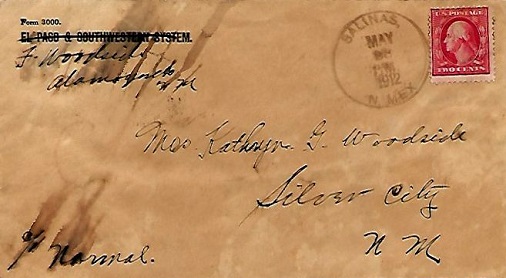 Form 3000.
EL PASO & SOUTHWESTERN SYSTEM.
F. Woodside
Alamogordo
N M
SALINAS,
MAY
1912
N. MEX.
U.S. POSTAGE
TWO CENTS
Miss Kathryn G. Woodside
Silver City
N M
% Normal.